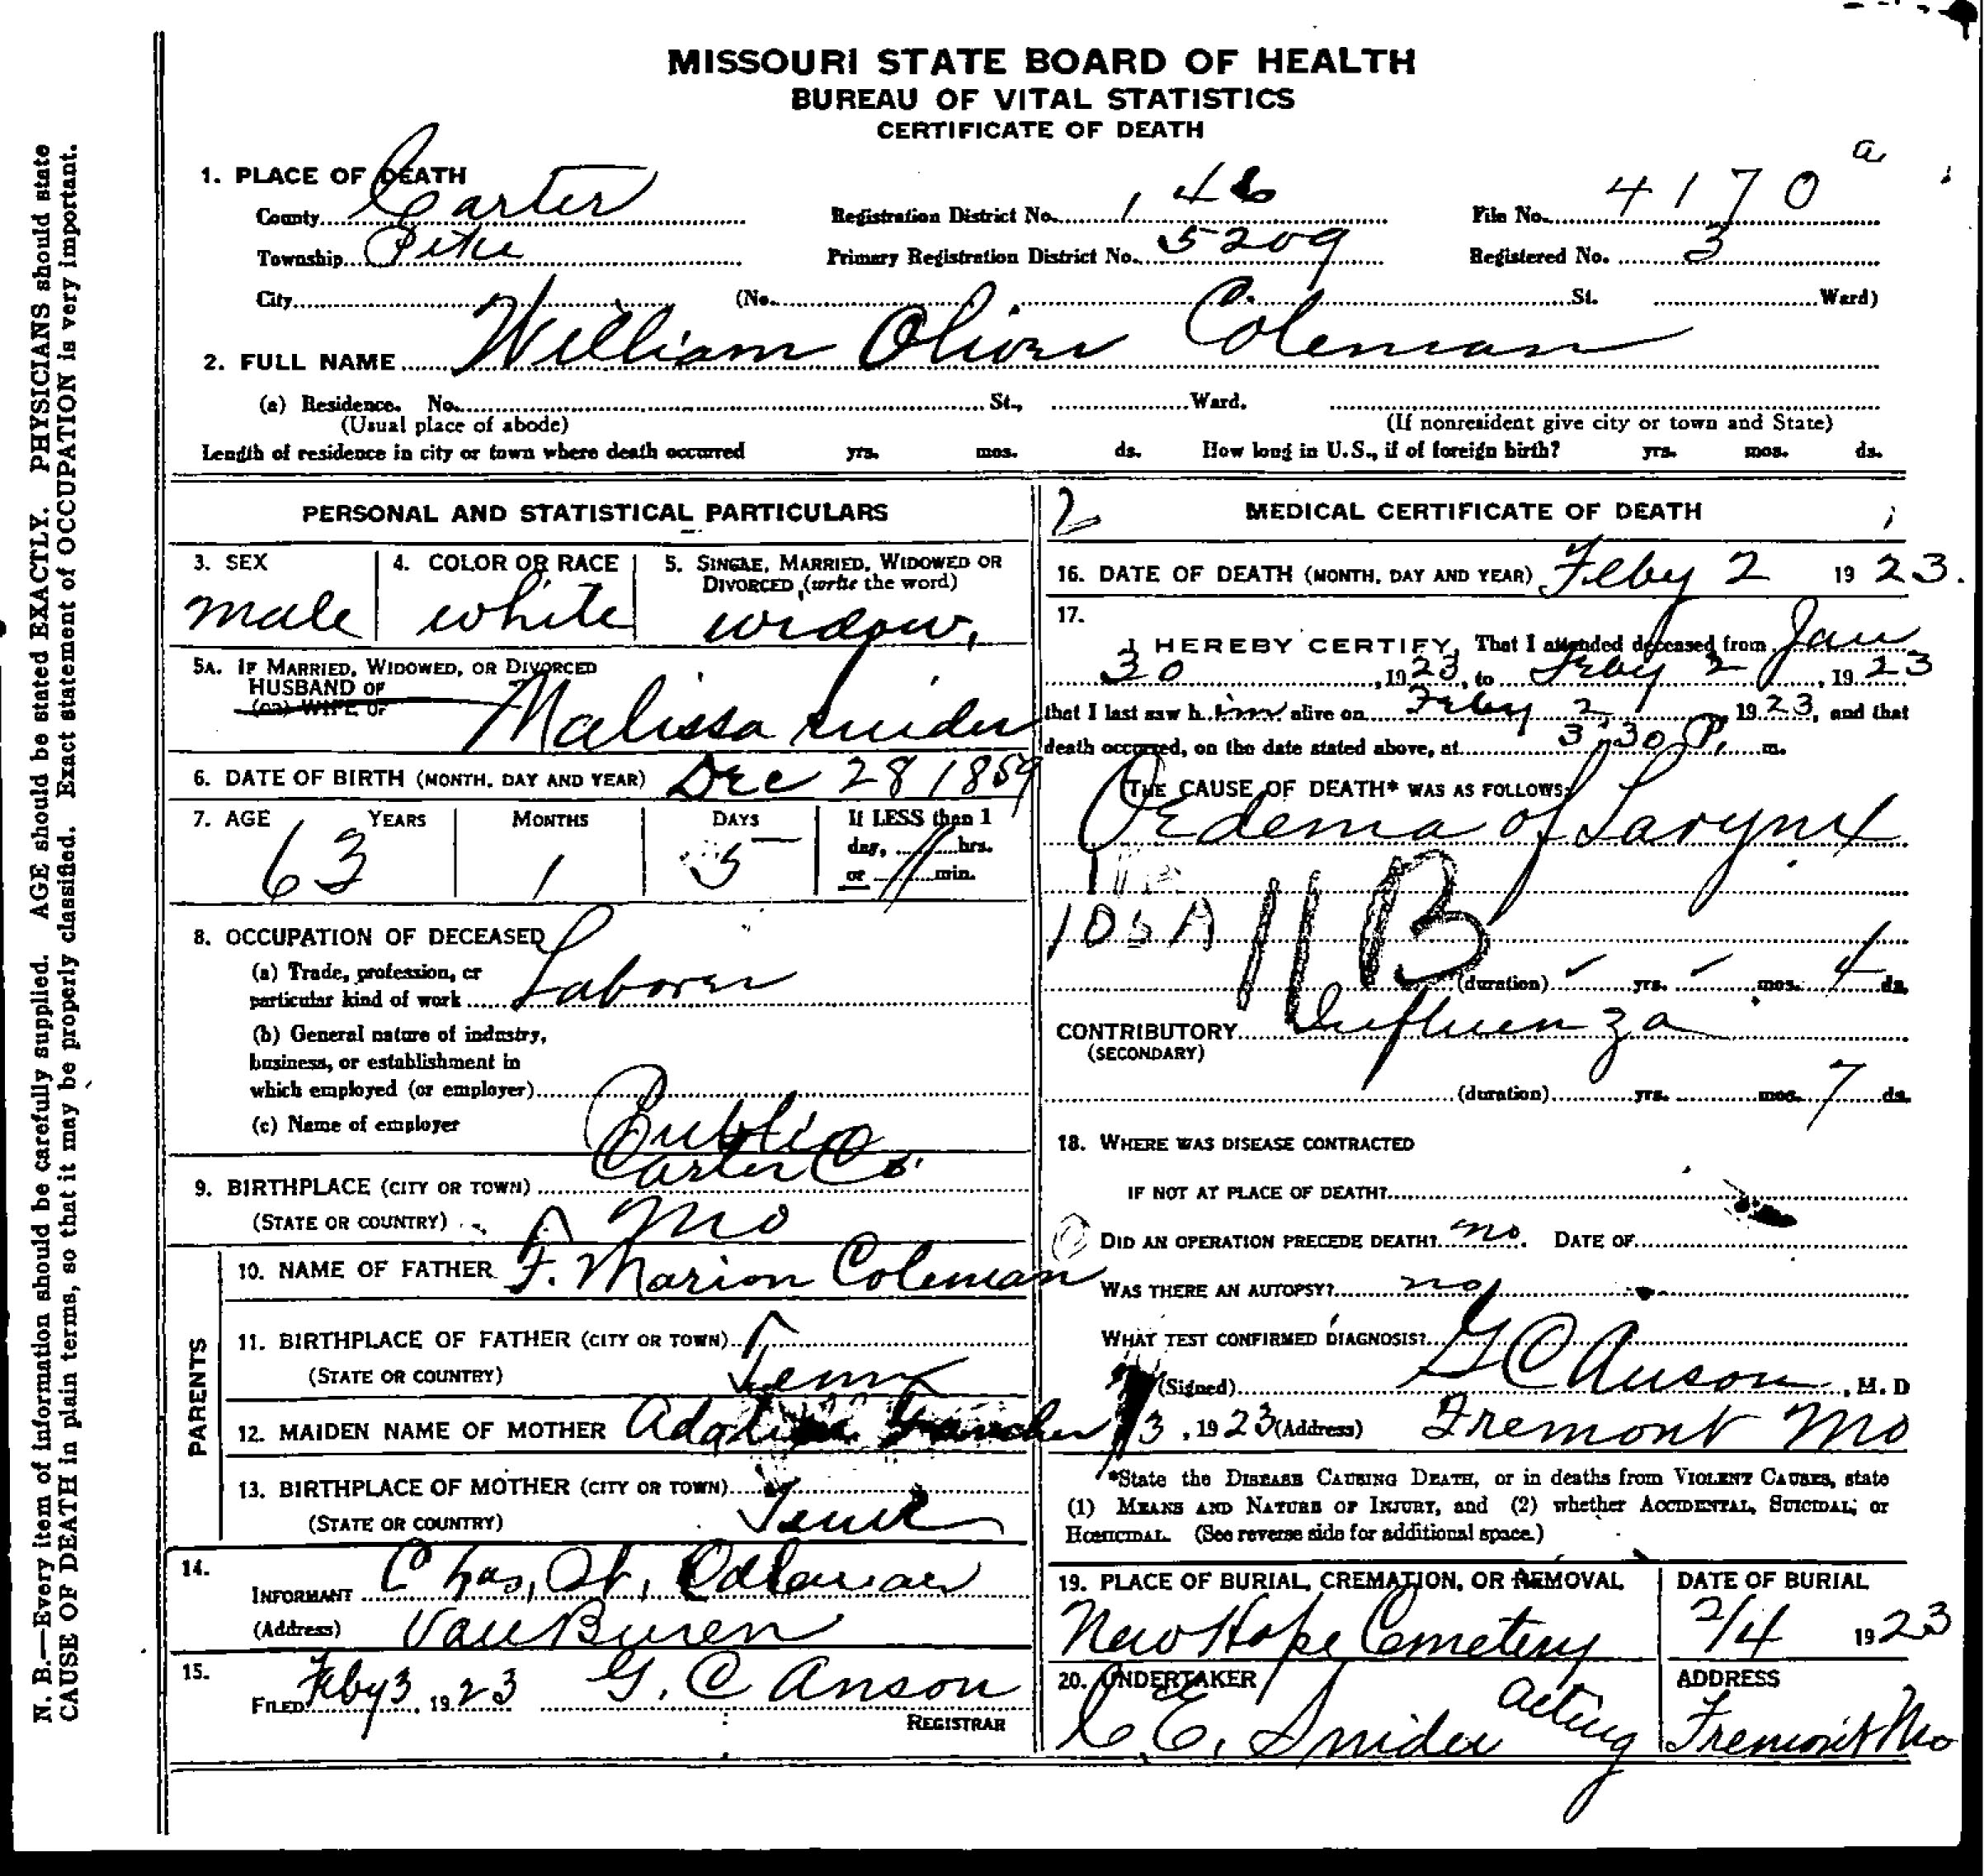 MISSOURI STATE BOARD OF HEALTH
BUREAU OF VITAL STATISTICS
CERTIFICATE OF DEATH
a
1. PLACE OF DEATH
County Carter Registration District No. 146 File No. 4170
Township Pike Primary Registration District No. 5209 Registered No. 3
City (No. St. Ward)
2. FULL NAME William Oliver Coleman
(a) Residence. No. St., Ward.
(Usual place of abode) (If nonresident give city or town and State)
Length of residence in city or town where death occurred yrs. mos. ds. How long in U.S., if of foreign birth? yrs. mos. ds.
PERSONAL AND STATISTICAL PARTICULARS
3. SEX 4. COLOR OR RACE 5. SINGLE, MARRIED, WIDOWED OR
DIVORCED (write the word)
male white widow,
5A. IF MARRIED, WIDOWED, OR DIVORCED
HUSBAND OF
(OR) WIFE OF
Malissa Snider
6. DATE OF BIRTH (MONTH, DAY AND YEAR) Dec 28 1859
7. AGE YEARS MONTHS DAYS If LESS than 1
day, hrs.
or min.
63 1 5
8. OCCUPATION OF DECEASED
(a) Trade, profession, or
particular kind of work Laborer
(b) General nature of industry,
business, or establishment in
which employed (or employer)
(c) Name of employer Public
9. BIRTHPLACE (CITY OR TOWN) Carter Co.
(STATE OR COUNTRY) Mo
PARENTS
10. NAME OF FATHER F. Marion Coleman
11. BIRTHPLACE OF FATHER (CITY OR TOWN)
(STATE OR COUNTRY) Tenn
12. MAIDEN NAME OF MOTHER
13. BIRTHPLACE OF MOTHER (CITY OR TOWN)
(STATE OR COUNTRY) Tenn
14.
INFORMANT Chas. Coleman
(Address) Van Buren
15.
FILED Feby 3 1923 G. C Anson
REGISTRAR
2 MEDICAL CERTIFICATE OF DEATH
16. DATE OF DEATH (MONTH, DAY AND YEAR) Feby 2 1923.
17.
I HEREBY CERTIFY, That I attended deceased from Jan
30, 1923, to Feby 2, 1923
that I last saw him alive on Feby 2, 1923, and that
death occurred, on the date stated above, at 3:30 P. m.
THE CAUSE OF DEATH* WAS AS FOLLOWS:
Oedema of Larynx
11B
(duration) yrs. mos. 4 ds.
CONTRIBUTORY Influenza
(SECONDARY)
(duration) yrs. mos. 7 ds.
18. WHERE WAS DISEASE CONTRACTED
IF NOT AT PLACE OF DEATH?
DID AN OPERATION PRECEDE DEATH? no. DATE OF
WAS THERE AN AUTOPSY? no
WHAT TEST CONFIRMED DIAGNOSIS?
(Signed) G C Anson, M. D
3, 1923 (Address) Fremont Mo
*State the DISEASE CAUSING DEATH, or in deaths from VIOLENT CAUSES, state
(1) MEANS AND NATURE OF INJURY, and (2) whether ACCIDENTAL, SUICIDAL, or
HOMICIDAL. (See reverse side for additional space.)
19. PLACE OF BURIAL, CREMATION, OR REMOVAL DATE OF BURIAL
New Hope Cemetery 2/4 1923
20. UNDERTAKER ADDRESS
C. E. Snider acting Fremont Mo
N. B.—Every item of information should be carefully supplied. AGE should be stated EXACTLY. PHYSICIANS should state
CAUSE OF DEATH in plain terms, so that it may be properly classified. Exact statement of OCCUPATION is very important.